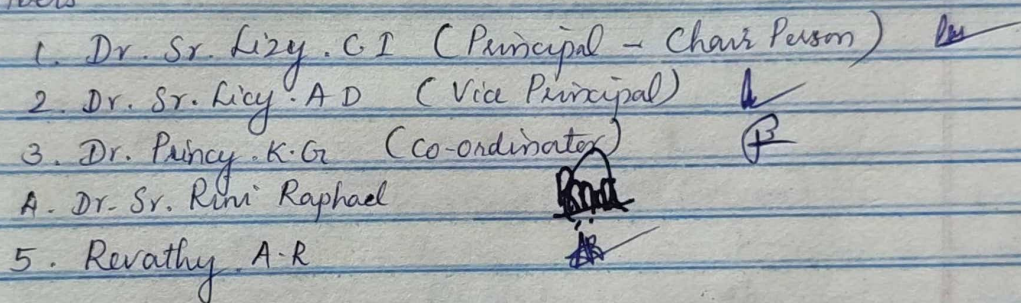 1. Dr. Sr. Lizy. C I (Principal - Chair Person)
2. Dr. Sr. Licy. A D (Vice Principal)
3. Dr. Princy. K. G (Co-ordinator)
4. Dr. Sr. Rini Raphael
5. Revathy. A. R